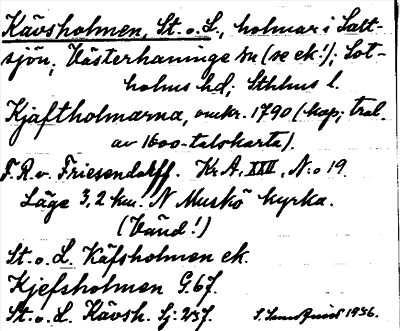 Kävsholmen, St. o. L., holmar i Sätt-
sjön, Västerhaninge sn (se ek!); Sot-
holms hd; Sthlms l.
Kjäftholmarna, omkr. 1790 (kop; trol.
av 1600-talskarta).
F.R.v. Friesendorff. Kr A, XXII, N:o 19.
Läge 3,2 km. N Muskö kyrka.
(Vänd!)
St. o. L. Käfsholmen ek.
Kjefsholmen G.67.
St. o. L. Kävsh. Sj: 237.
1936.